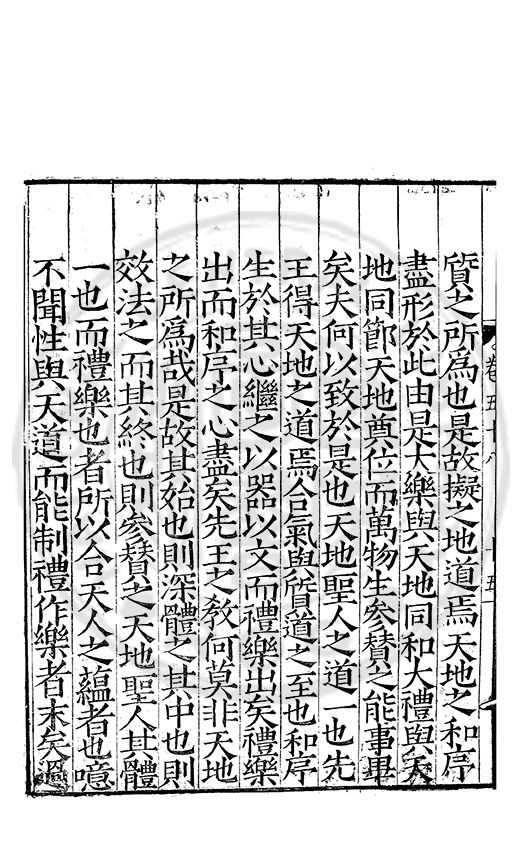 質之所爲也是故擬之地道焉天地之和序
盡形於此由是大樂與天地同和大禮與天
地同節天地奠位而萬物生參賛之能事畢
矣夫何以致於是也天地聖人之道一也先
王得天地之道焉合氣與質道之至也和序
生於其心繼之以器以文而禮樂出矣禮樂
出而和序之心盡矣先王之教何莫非天地
之所爲哉是故其始也則深體之其中也則
效法之而其終也則參賛之天地聖人其體
一也而禮樂也者所以合天人之蘊者也噫
不聞性與天道而能制禮作樂者未矣